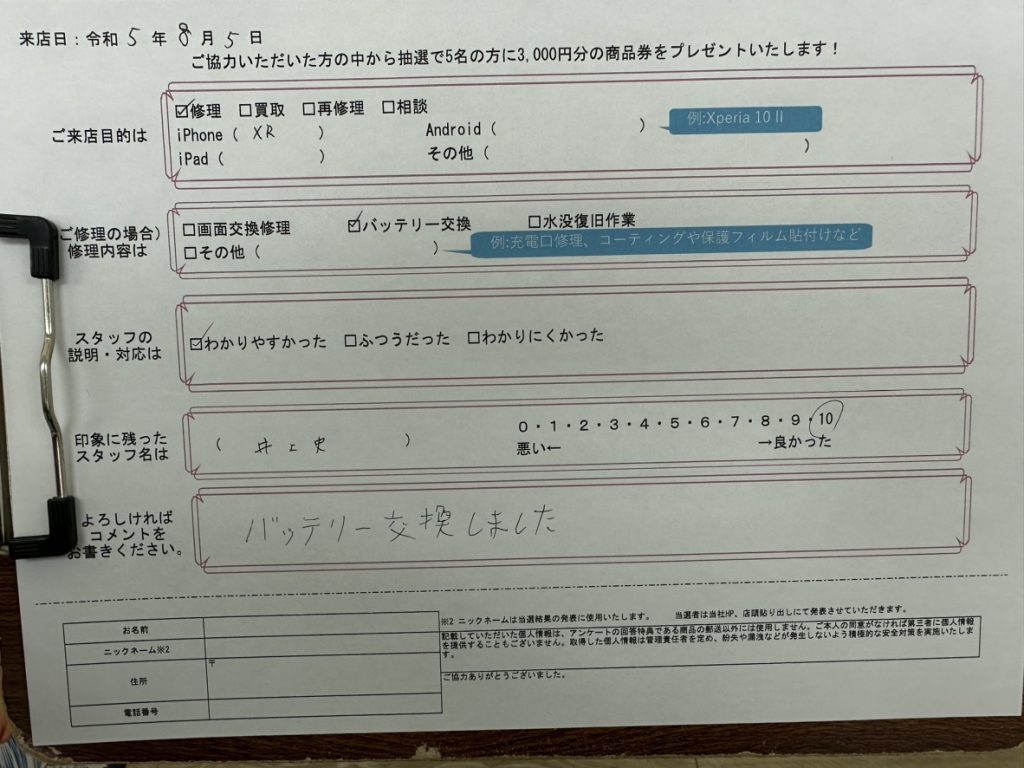 来店日：令和 5 年 8 月 5 日
ご協力いただいた方の中から抽選で5名の方に3,000円分の商品券をプレゼントいたします！
ご来店目的は
☑修理 □買取 □再修理 □相談
iPhone（ XR ） Android（ ） 例:Xperia 10 II
iPad（ ） その他（ ）
ご修理の場合）
修理内容は
□画面交換修理 ☑バッテリー交換 □水没復旧作業
□その他（ ） 例:充電口修理、コーティングや保護フィルム貼付けなど
スタッフの
説明・対応は
☑わかりやすかった □ふつうだった □わかりにくかった
印象に残った
スタッフ名は
（ 井上史 ）
0・1・2・3・4・5・6・7・8・9・10
悪い← →良かった
よろしければ
コメントを
お書きください。
バッテリー交換しました
お名前
ニックネーム※2
住所 〒
電話番号
※2 ニックネームは当選結果の発表に使用いたします。 当選者は当社HP、店頭貼り出しにて発表させていただきます。
記載していただいた個人情報は、アンケートの回答特典である商品の郵送以外には使用しません。ご本人の同意がなければ第三者に個人情報
を提供することもございません。取得した個人情報は管理責任者を定め、紛失や漏洩などが発生しないよう積極的な安全対策を実施いたしま
す。
ご協力ありがとうございました。